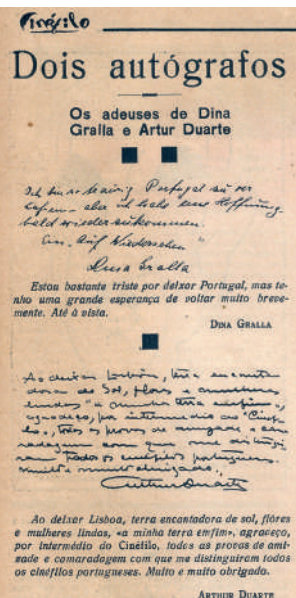 Cinéfilo
Dois autógrafos
Os adeuses de Dina
Gralla e Artur Duarte
Ich bin so traurig Portugal zu ver
lassen – aber ich habe eine Hoffnung
bald wiederzukommen.
"Auf Wiedersehen"
Gralla
Estou bastante triste por deixar Portugal, mas te-
nho uma grande esperança de voltar muito breve-
mente. Até à vista.
DINA GRALLA
Ao deixar Lisboa, terra encanta
dora de Sol, flores e mulheres
lindas "a minha terra emfim",
agradeço, por intermedio do "Cinéfi
lo", todas as provas de amizade e cama
radagem com que me distingui
ram todos os cinéfilos portugueses.
Muito e muito obrigado.
Arthur Duarte
Ao deixar Lisboa, terra encantadora de sol, flôres
e mulheres lindas, «a minha terra emfim», agradeço,
por intermédio do Cinéfilo, todas as provas de ami-
zade e comaradagem com que me distinguiram todos
os cinéfilos portugueses. Muito e muito obrigado.
ARTHUR DUARTE